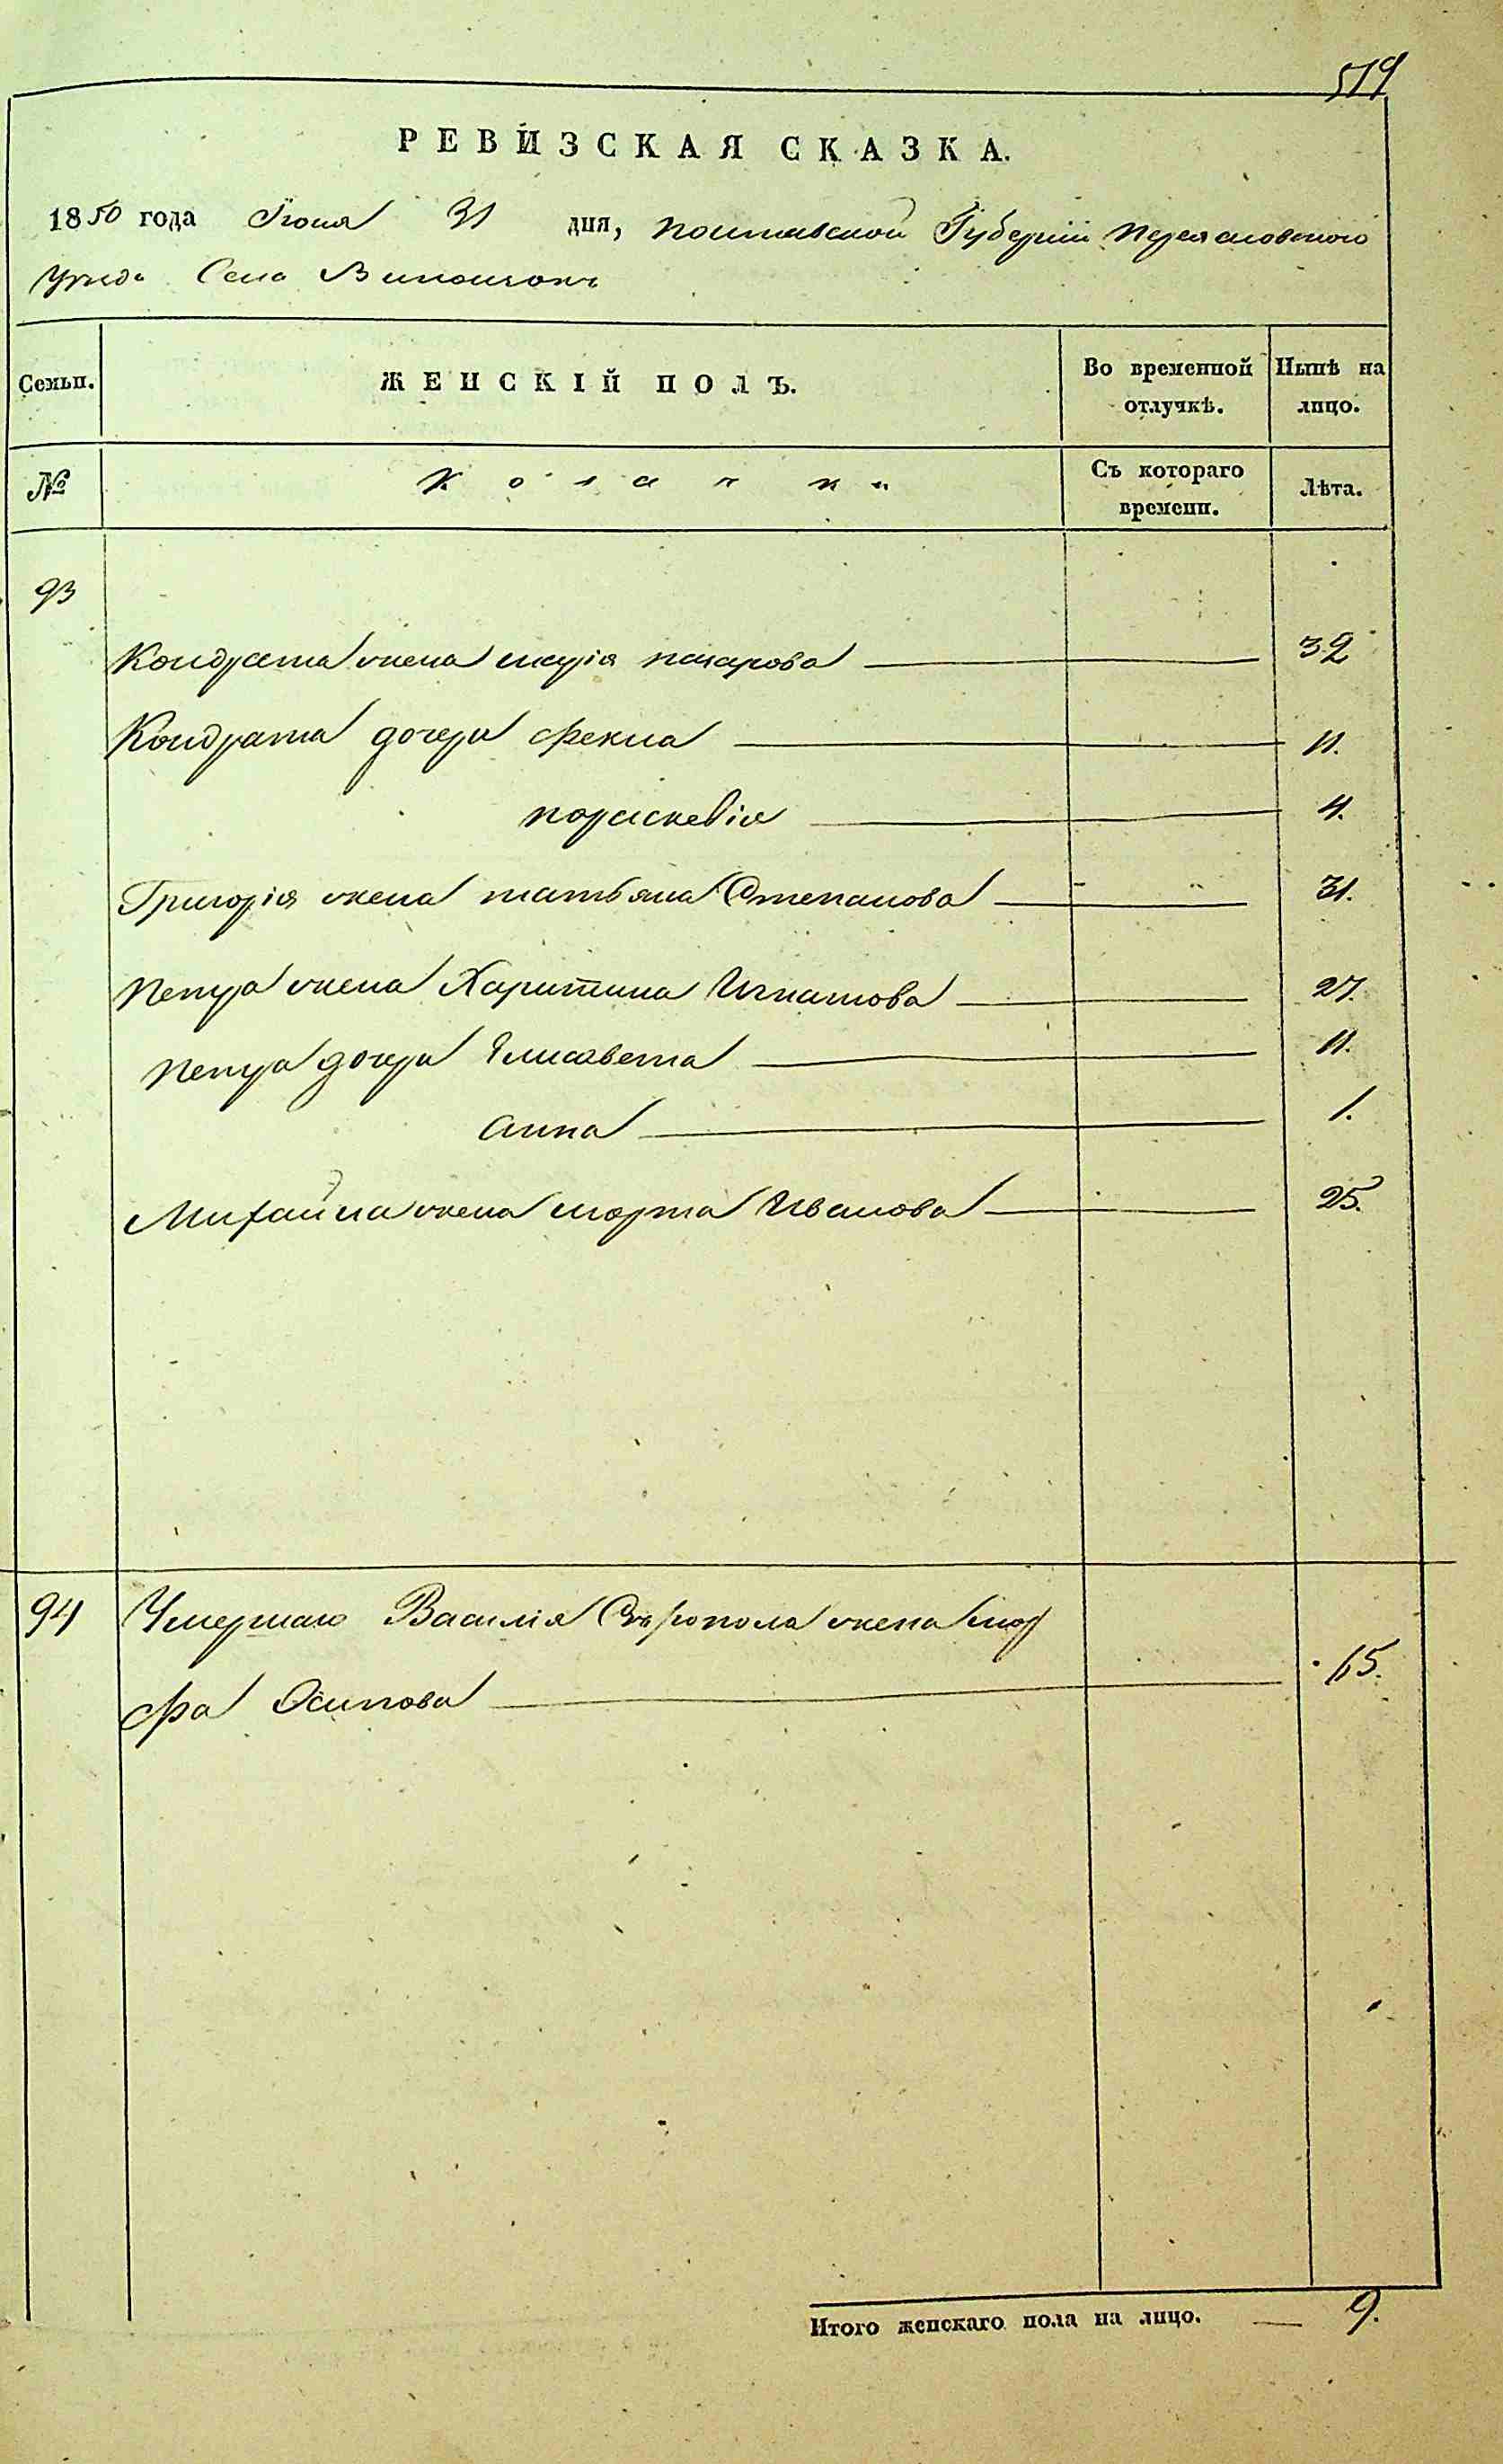 519
РЕВИЗСКАЯ СКАЗКА.
1850 года Июня 31 дня, Полтавской Губернiи Переясловского
Уезда Села Випошокъ
Семьи. ЖЕНСКІЙ ПОЛЪ. Во временной отлучкѣ. Нынѣ на лицо.
№ Козачки Съ котораго времени. Лѣта.
93
Кондрата жена марiя назарова 32
Кондрата дочери Фекла 11.
параскевiя 4.
Григорiя жена татьяна Степанова 31.
Петра жена Харитина Игнатова 27.
Петра дочери Елисавета 11.
анна 1.
Михайла жена марта Иванова 25.
94 Умершаго Василiя жена мар
фа Осипова 65.
Итого женскаго пола на лицо. 9.